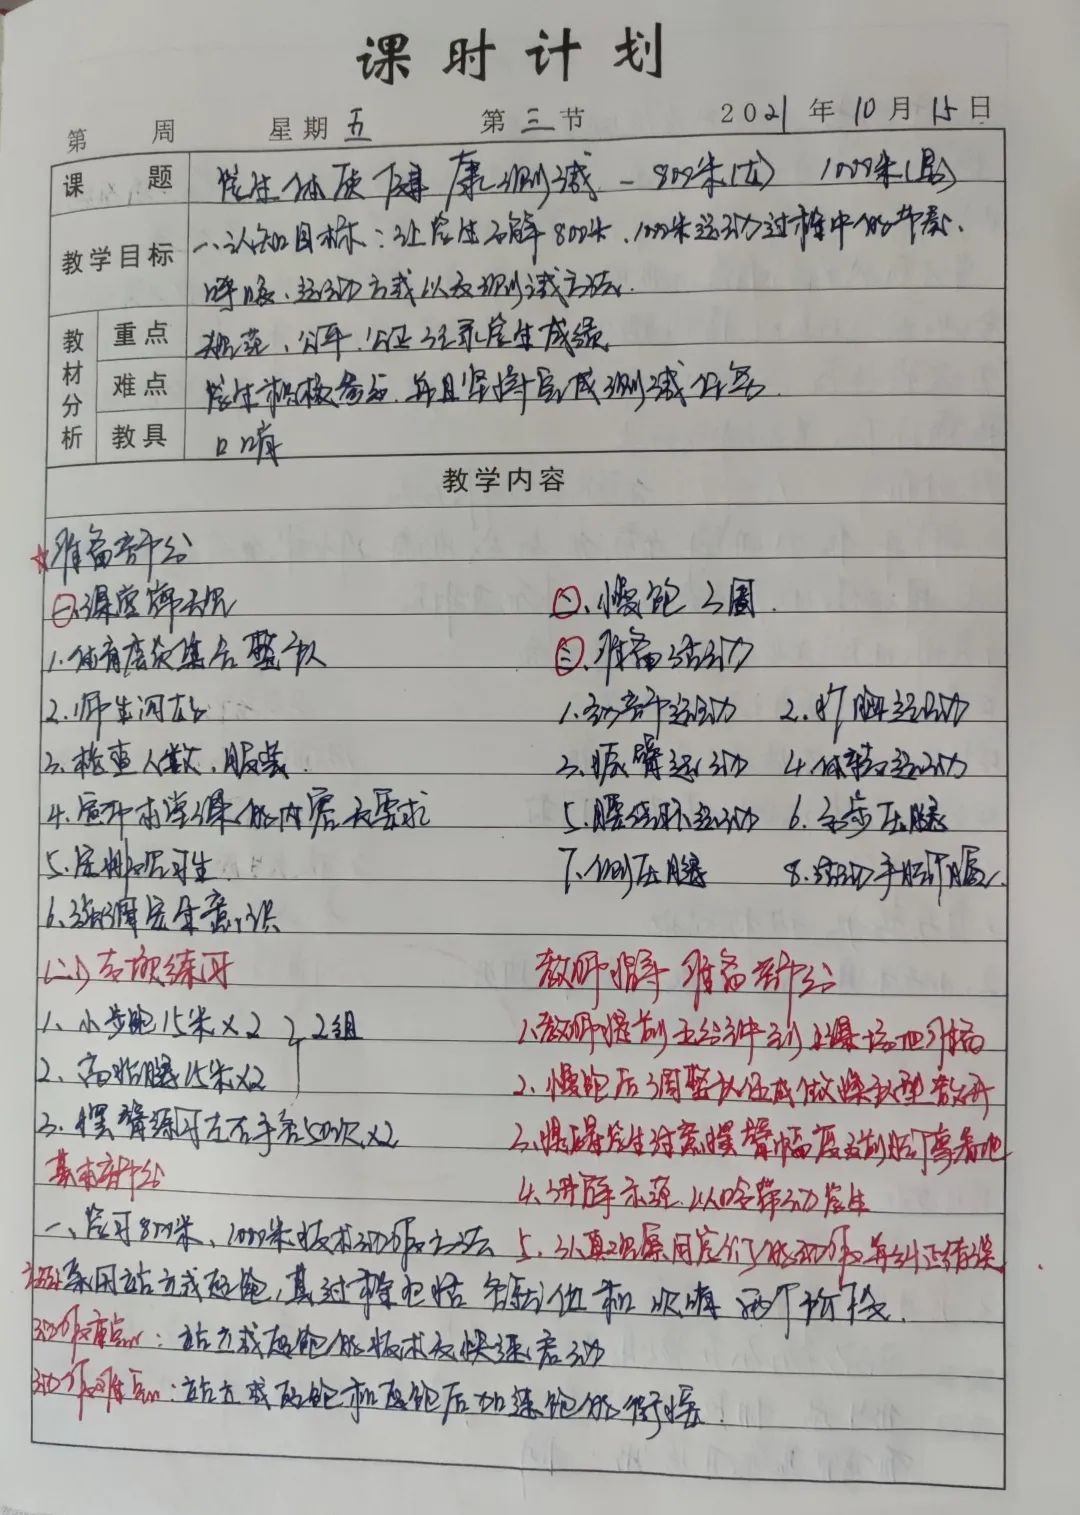 课时计划
第 周 星期五 第三节 2021年10月15日
课题 学生体质健康测试－800米(女) 1000米(男)
教学目标 一、认知目标：让学生了解800米、1000米运动过程中的节奏、
呼吸、运动方式以及测试方法.
教材分析
重点 规范、公平、公正记录学生成绩
难点 学生积极参与.并且坚持完成测试任务.
教具 口哨
教学内容
准备部分
㊀、课堂常规
1.体育委员集合整队
2.师生问好
3.检查人数、服装.
4.宣布本堂课的内容及要求
5.安排见习生
6.强调安全意识
㊁、慢跑3圈.
㊂、准备活动
1.头部运动 2.扩胸运动
3.振臂运动 4.体转运动
5.腰绕环运动 6.弓步压腿
7.侧压腿 8.活动手腕脚腕.
(二)专项练习
1、小步跑15米×2 2组
2、高抬腿15米×2
3、摆臂练习左右手各50次×2
教师指导 准备部分
1.教师提前五分钟到上课场地准备
2.慢跑后调整队伍成做操队型散开
3.提醒学生注意摆臂幅度及前脚掌着地
4.讲解示范.以口令带动学生
5.认真观察同学们的动作及时纠正错误
基本部分
一、学习800米、1000米技术动作及方法
采用站立式起跑,其过程包括各就位和鸣哨两个阶段.
动作重点：站立式起跑的技术及快速启动
动作难点：站立式起跑和起跑后加速跑的衔接.